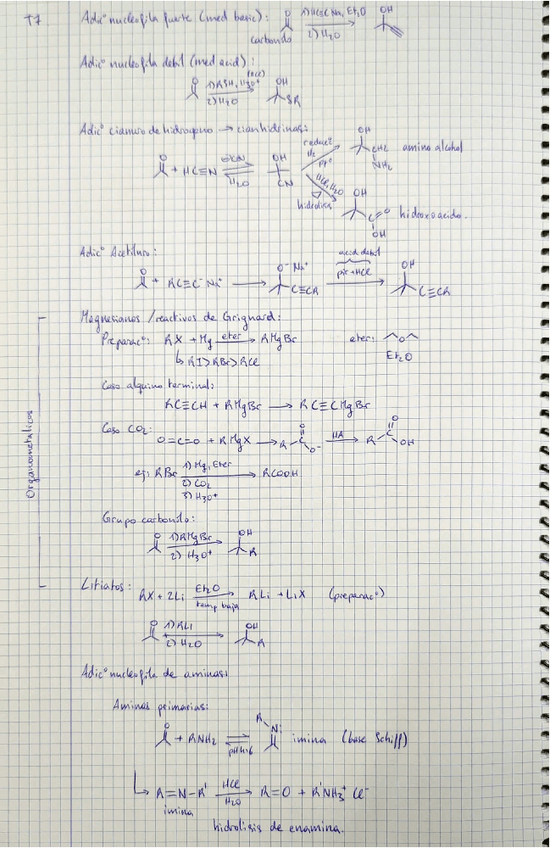 T7 Adic° nucleofila fuerte (med basic): O 1) HC≡CNa, Et2O 2) H2O OH
carbonilo
Adic° nucleofila debil (med acid):
O 1) RSH, H3O+ (HCl) 2) H2O OH SR
Adic° cianuro de hidrogeno → cianhidrinas:
O + HC≡N H2O OH CN
H2 Pt OH CH2 NH2 amino alcohol
HCl, H2O hidrolisis OH C=O OH hidroxoacido.
Adic° Acetiluro:
O + RC≡C⁻ Na⁺ → O⁻ Na⁺ C≡CR acid debil + HCl OH C≡CR
Organometalicos
Magnesianos / reactivos de Grignard:
Preparac°: RX + Mg eter → RMgBr eter: O
↳ RI > RBr > RCl Et2O
Caso alquino terminal:
RC≡CH + RMgBr → RC≡CMgBr
Caso CO2:
O=C=O + RMgX → R-C O O⁻ HA → R-C O OH
ej: RBr 1) Mg, Eter 2) CO2 3) H3O+ → RCOOH
Grupo carbonilo:
O 1) RMgBr 2) H3O+ OH R
Litiatos: RX + 2Li Et2O temp baja → RLi + LiX (preparac°)
O 1) RLi 2) H2O OH R
Adic° nucleofila de aminas:
Aminas primarias:
O + RNH2 ⇌ R N: imina (base Schiff)
↳ R=N-R' HCl H2O → R=O + R'NH3⁺ Cl⁻
imina
hidrolisis de enamina.